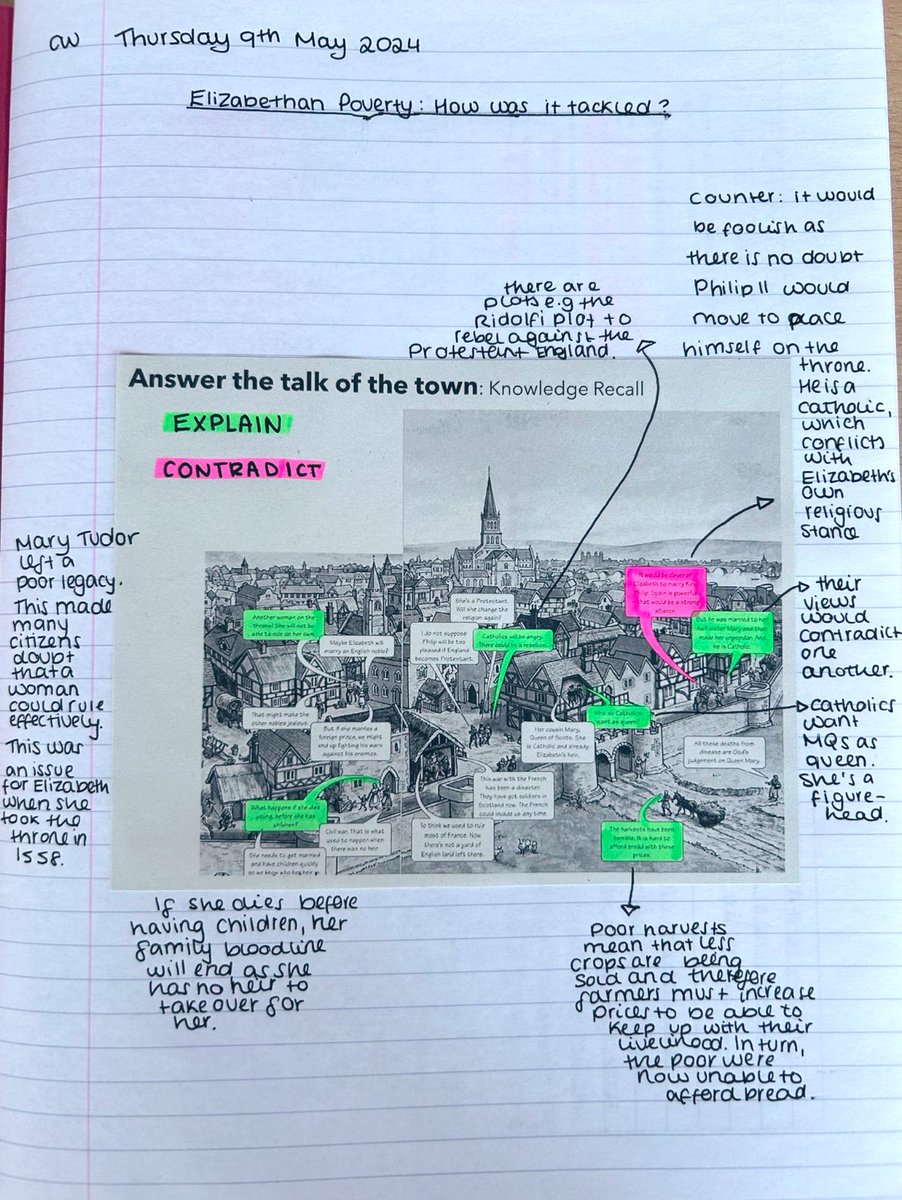 CW Thursday 9th May 2024
Elizabethan Poverty: How was it tackled?
Counter: it would
be foolish as
there is no doubt
Philip II would
move to place
himself on the
throne.
He is a
catholic,
which
conflicts
with
Elizabeth's
own
religious
stance
there are
plots e.g the
Ridolfi plot to
rebel against the
Protestant England.
Answer the talk of the town: Knowledge Recall
EXPLAIN
CONTRADICT
Mary Tudor
left a
poor legacy.
This made
many
citizens
doubt
that a
woman
could rule
effectively.
This was
an issue
for Elizabeth
when she
took the
throne in
1558.
Another woman on the
throne! She will not be
able to rule on her own.
Maybe Elizabeth will
marry an English noble?
She's a Protestant.
Will she change the
religion again?
I do not suppose
Philip will be too
pleased if England
becomes Protestant.
Catholics will be angry.
There could be a rebellion.
It would be clever of
Elizabeth to marry King
Philip. Spain is powerful
that would be a strong
alliance.
But he was married to her
half-sister Mary and that
made her unpopular. And
he is Catholic.
their
views
would
contradict
one
another.
That might make the
other nobles jealous.
But if she married a
foreign prince, we might
end up fighting his wars
against his enemies.
Who do Catholics
want as queen?
Her cousin Mary,
Queen of Scots. She
is Catholic and already
Elizabeth's heir.
All these deaths from
disease are God's
judgement on Queen Mary.
Catholics
want
MQs as
queen.
She's a
figure-
head.
What happens if she dies
young, before she has
children?
Civil war. That is what
used to happen when
there was no heir.
She needs to get married
and have children quickly
so we know who her heir is.
This war with the French
has been a disaster.
They have got soldiers in
Scotland now. The French
could invade us any time.
To think we used to rule
most of France. Now
there's not a yard of
English land left there.
The harvests have been
terrible. It is hard to
afford bread with these
prices.
If she dies before
having children, her
family bloodline
will end as she
has no heir to
take over for
her.
Poor harvests
mean that less
crops are being
sold and therefore
farmers must increase
prices to be able to
keep up with their
livelihood. In turn,
the poor were
now unable to
afford bread.